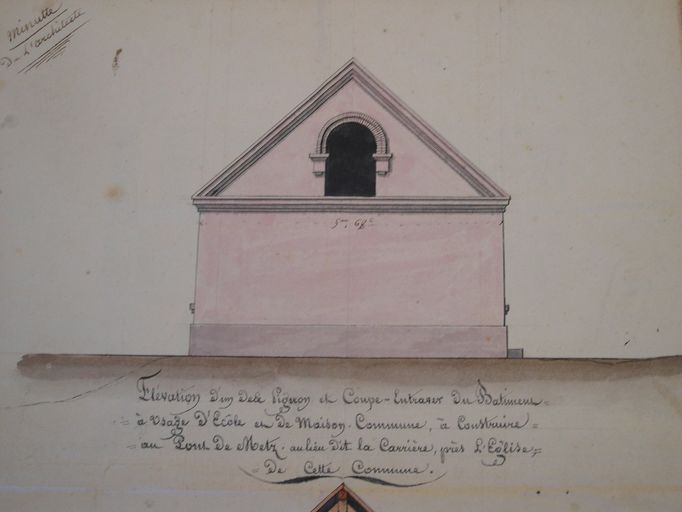 Minutte
De L'architecte
5m, 68c
Élévation D'un Pignon et Coupe-Entraver Du Batiment =
= à Usage D'École et De Maison-Commune, à Construire =
= au Pont De Metz. au lieu Dit la Carrière, près L'Église =
= De Cette Commune.